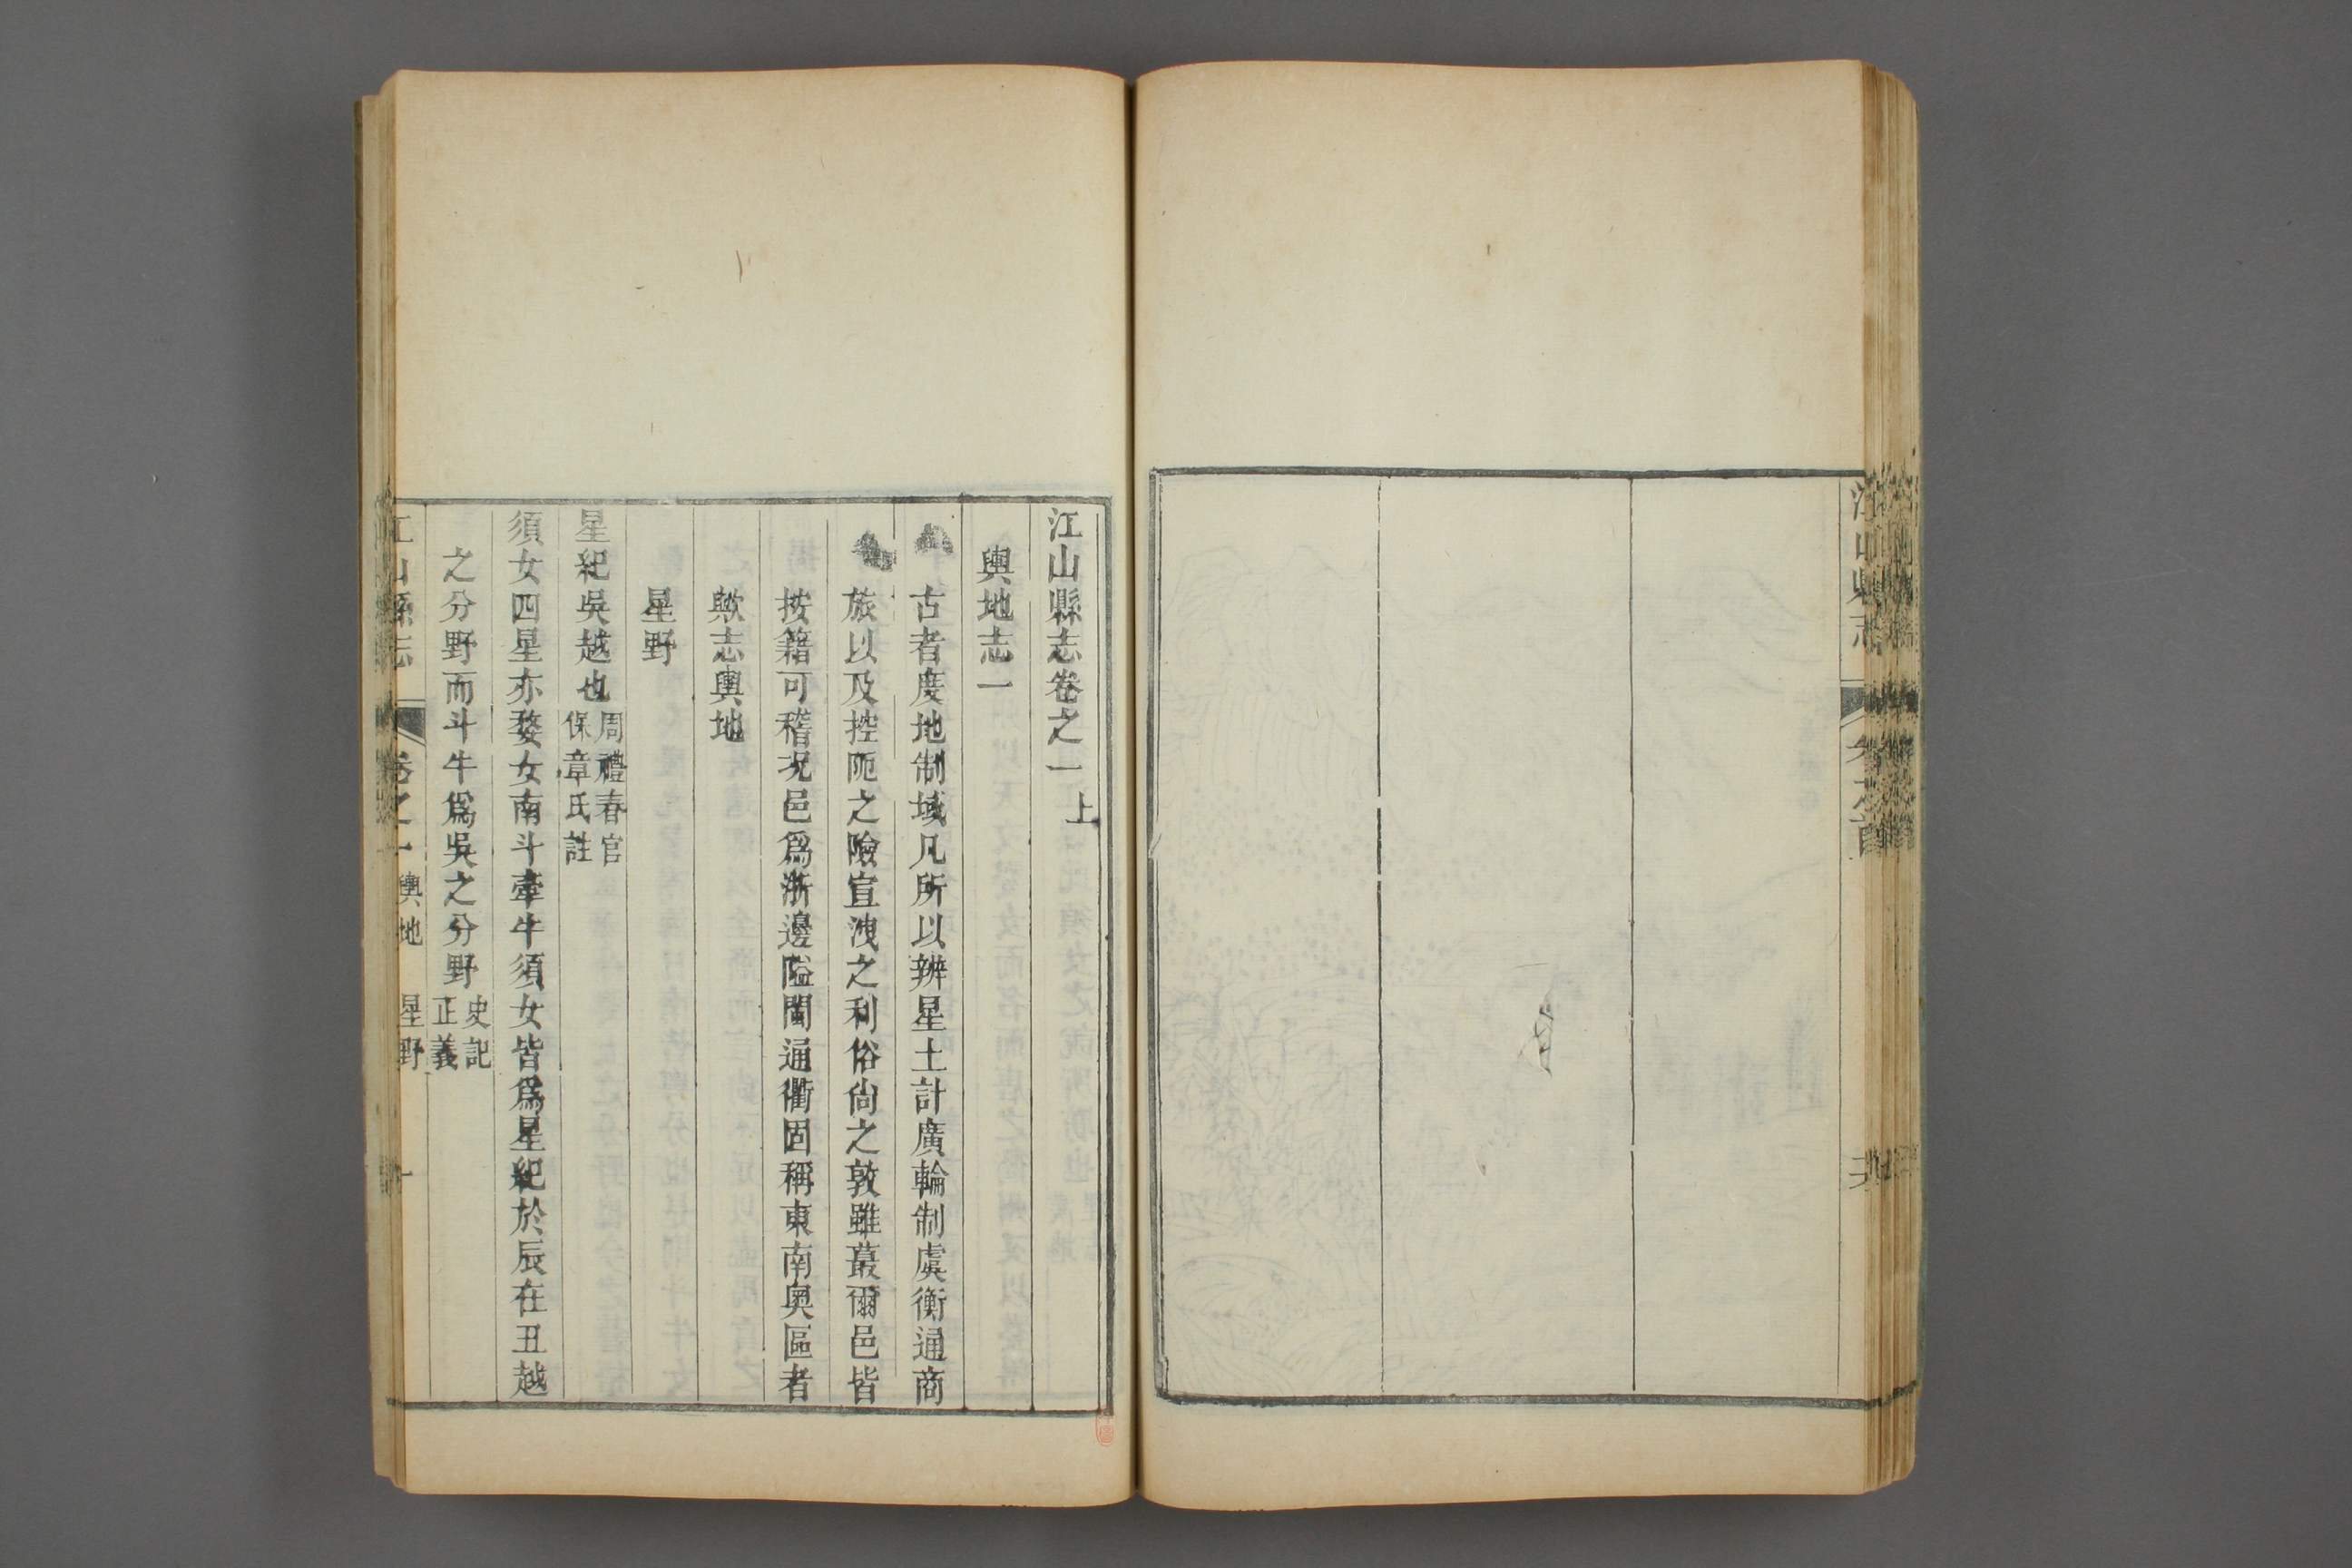 江山縣志
卷之首
江山縣志卷之一上
輿地志一
古者度地制域凡所以辨星土計廣輪制虞衡通商
旅以及控阨之險宣洩之利俗尙之敦雖蕞爾邑皆
按籍可稽况邑爲浙邊隘閩通衢固稱東南奥區者
歟志輿地
星野
星紀吳越也周禮春官
保章氏註
須女四星亦婺女南斗牽牛須女皆爲星紀於辰在丑越
之分野而斗牛爲吳之分野史記
正義
江山縣志
卷之一輿地 星野
一